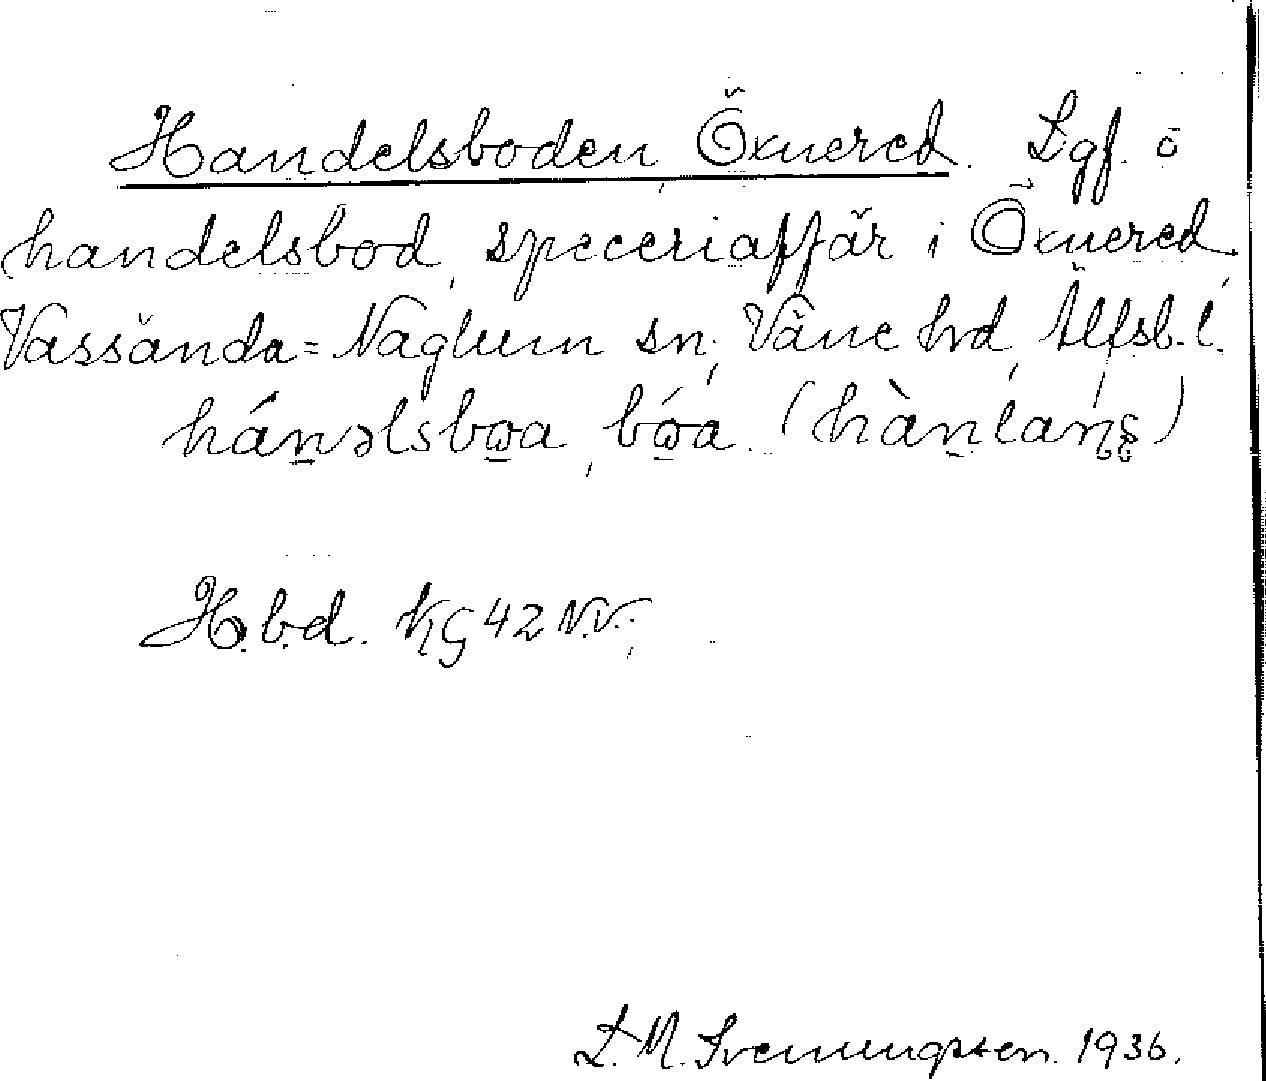 Handelsboden, Öxnered. Lgf. o
handelsbod, speceriaffär i Öxnered,
Vassända=Naglum sn, Väne hd, Älfsb. l.
hánəlsboa, bóa. (hànlans)
H.b.d. KG42NV.
L. M. Svenungsson. 1936.